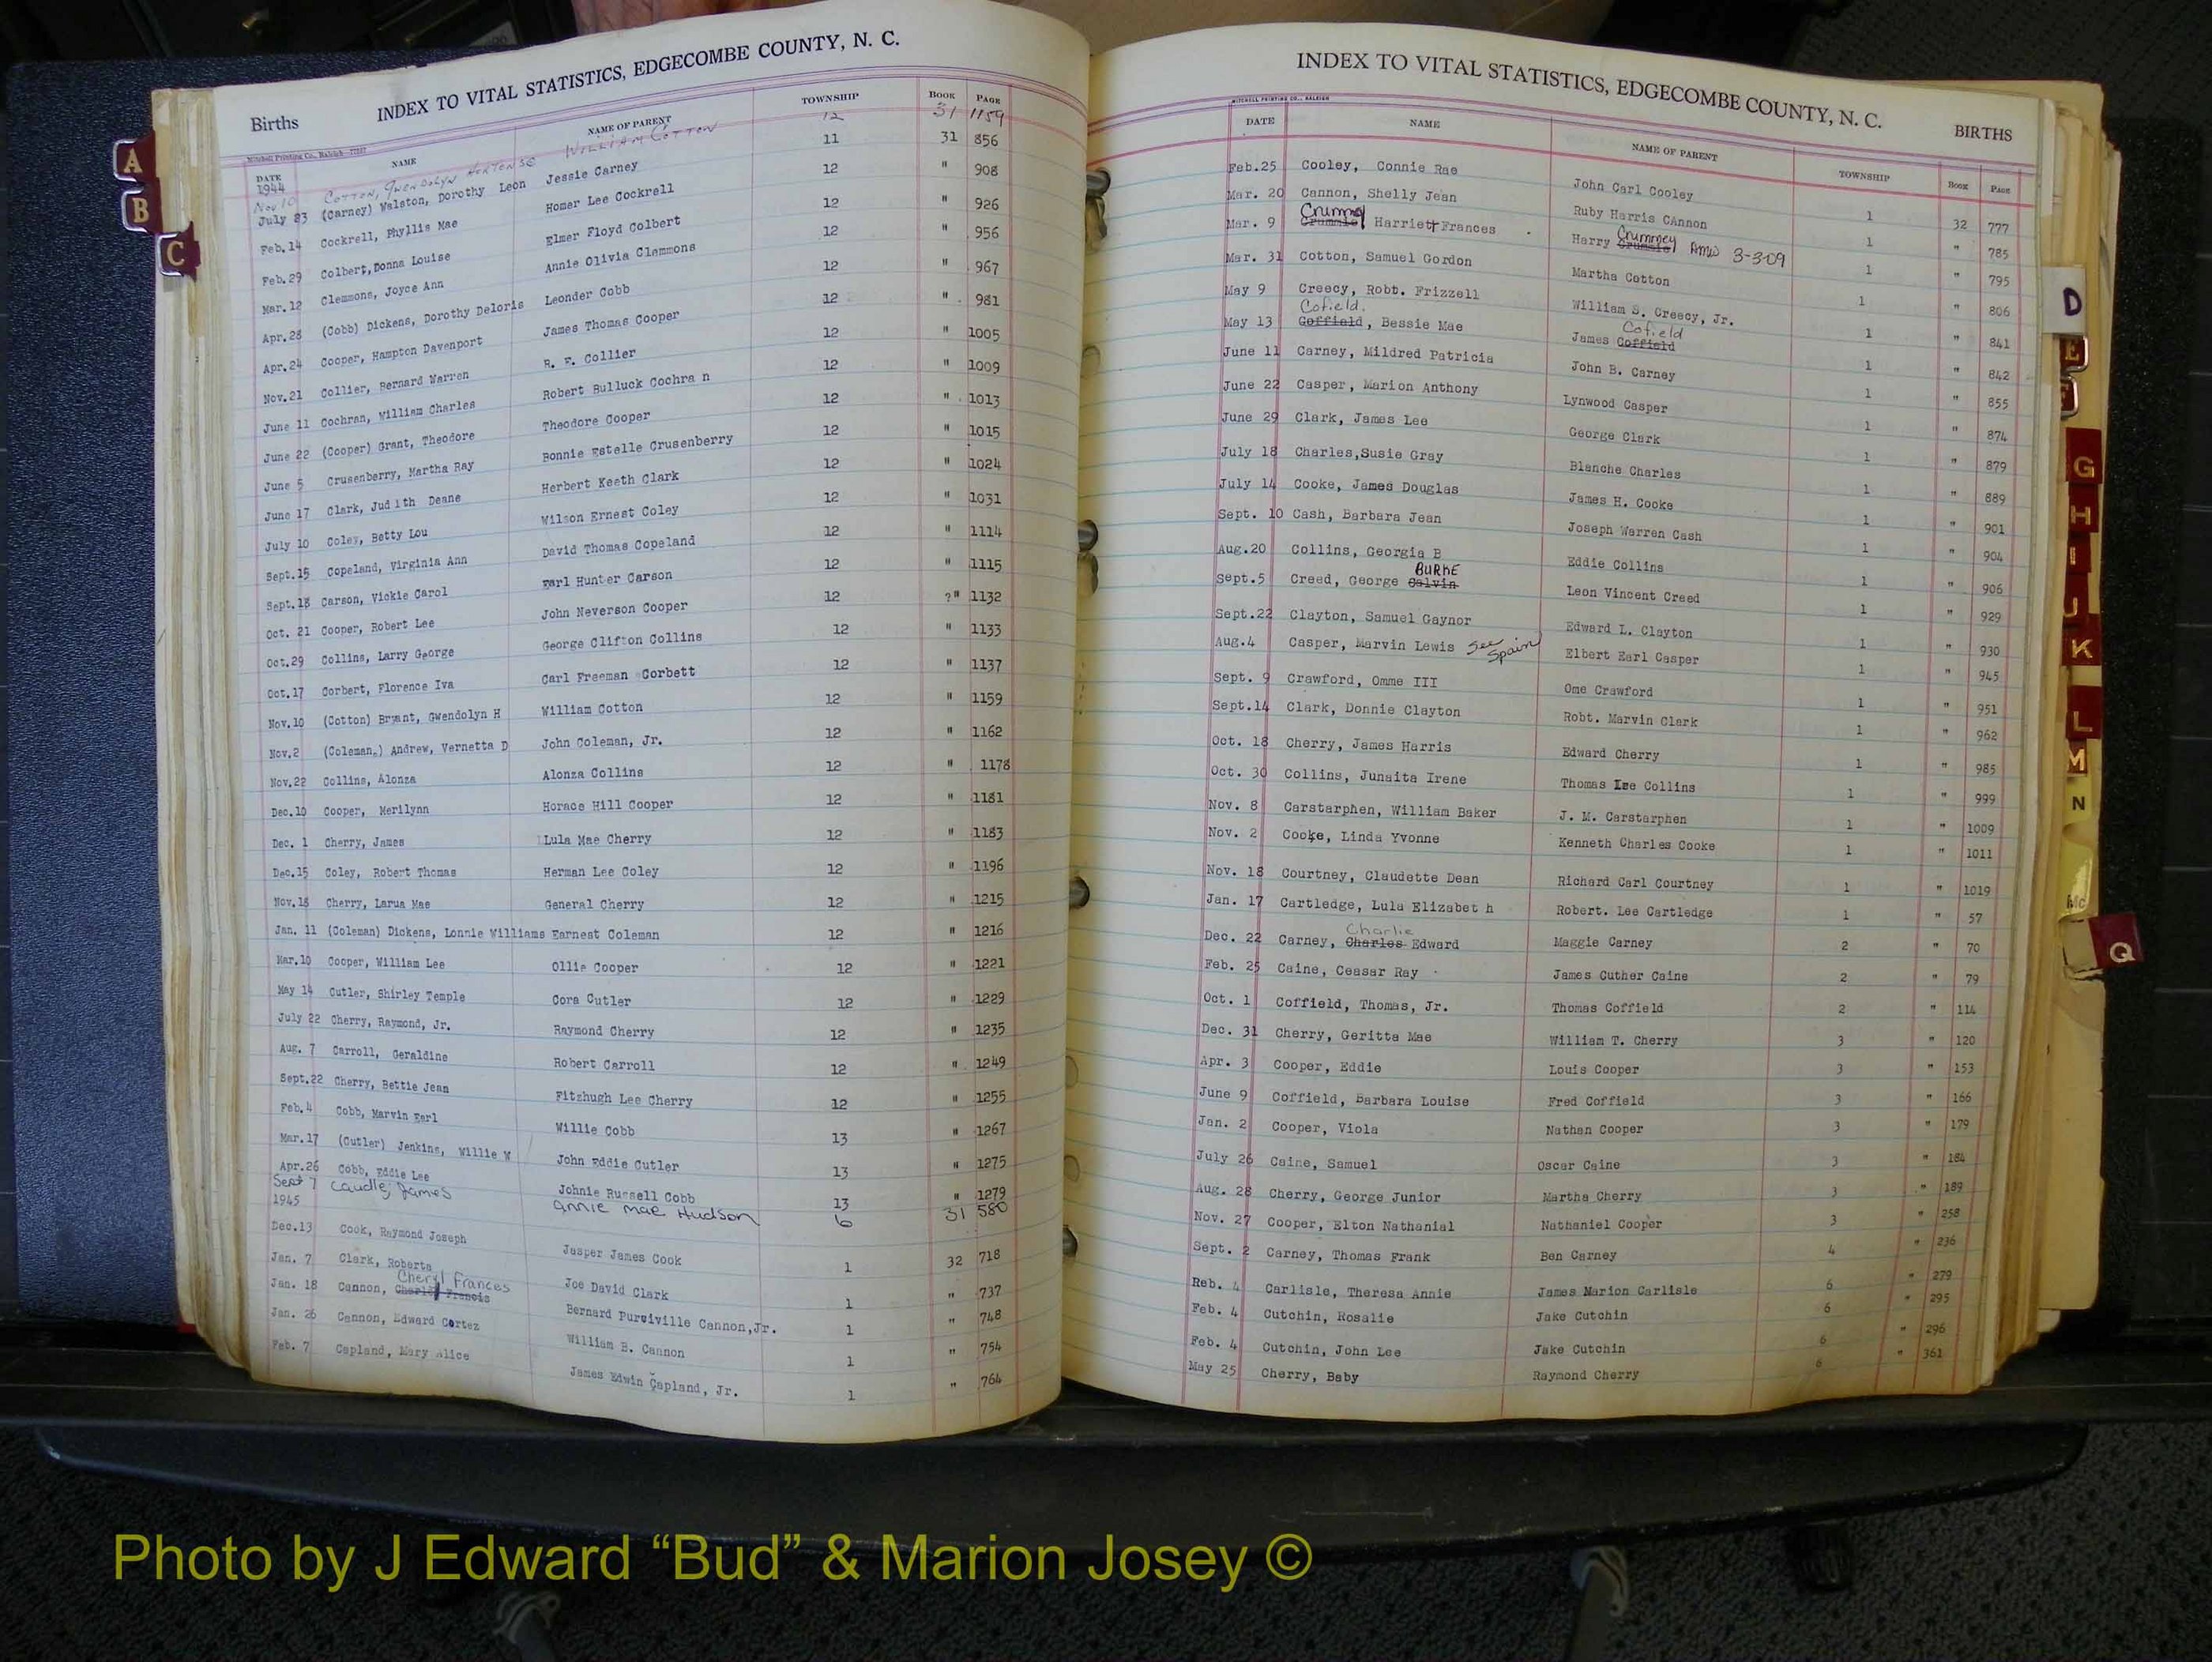 INDEX TO VITAL STATISTICS, EDGECOMBE COUNTY, N. C.
Births
Mitchell Printing Co., Raleigh
DATE NAME NAME OF PARENT TOWNSHIP BOOK PAGE
1944
Nov 10 COTTON, GWENDOLYN HORTENSE WILLIAM COTTON 12 31 1159
July 23 (Carney) Walston, Dorothy Leon Jessie Carney 11 31 856
Feb. 14 Cockrell, Phyllis Mae Homer Lee Cockrell 12 " 908
Feb. 29 Colbert, Donna Louise Elmer Floyd Colbert 12 " 926
Mar. 12 Clemmons, Joyce Ann Annie Olivia Clemmons 12 " 956
Apr. 28 (Cobb) Dickens, Dorothy Deloris Leonder Cobb 12 " 967
Apr. 24 Cooper, Hampton Davenport James Thomas Cooper 12 " 981
Nov. 21 Collier, Bernard Warren R. F. Collier 12 " 1005
June 11 Cochran, William Charles Robert Bulluck Cochra n 12 " 1009
June 22 (Cooper) Grant, Theodore Theodore Cooper 12 " 1013
June 5 Crusenberry, Martha Ray Bonnie Estelle Crusenberry 12 " 1015
June 17 Clark, Jud ith Deane Herbert Keeth Clark 12 " 1024
July 10 Coley, Betty Lou Wilson Ernest Coley 12 " 1031
Sept. 15 Copeland, Virginia Ann David Thomas Copeland 12 " 1114
Sept. 18 Carson, Vickie Carol Earl Hunter Carson 12 " 1115
Oct. 21 Cooper, Robert Lee John Neverson Cooper 12 ?" 1132
Oct. 29 Collins, Larry George George Clifton Collins 12 " 1133
Oct. 17 Corbert, Florence Iva Carl Freeman Corbett 12 " 1137
Nov. 10 (Cotton) Bryant, Gwendolyn H William Cotton 12 " 1159
Nov. 2 (Coleman,) Andrew, Vernetta D John Coleman, Jr. 12 " 1162
Nov. 22 Collins, Alonza Alonza Collins 12 " 1178
Dec. 10 Cooper, Merilynn Horace Hill Cooper 12 " 1181
Dec. 1 Cherry, James Lula Mae Cherry 12 " 1183
Dec. 15 Coley, Robert Thomas Herman Lee Coley 12 " 1196
Nov. 18 Cherry, Larua Mae General Cherry 12 " 1215
Jan. 11 (Coleman) Dickens, Lonnie Williams Earnest Coleman 12 " 1216
Mar. 10 Cooper, William Lee Ollie Cooper 12 " 1221
May 14 Cutler, Shirley Temple Cora Cutler 12 " 1229
July 22 Cherry, Raymond, Jr. Raymond Cherry 12 " 1235
Aug. 7 Carroll, Geraldine Robert Carroll 12 " 1249
Sept. 22 Cherry, Bettie Jean Fitzhugh Lee Cherry 12 " 1255
Feb. 4 Cobb, Marvin Earl Willie Cobb 13 " 1267
Mar. 17 (Cutler) Jenkins, Willie W John Eddie Cutler 13 " 1275
Apr. 26 Cobb, Eddie Lee Johnie Russell Cobb 13 " 1279
Sept 7 Caudle, James Annie Mae Hudson 6 31 580
1945
Dec. 13 Cook, Raymond Joseph Jasper James Cook 1 32 718
Jan. 7 Clark, Roberta Joe David Clark 1 " 737
Cheryl Frances
Jan. 18 Cannon, Francis Bernard Purviville Cannon, Jr. 1 " 748
Jan. 26 Cannon, Edward Cortez William B. Cannon 1 " 754
Feb. 7 Capland, Mary Alice James Edwin Capland, Jr. 1 " 764
INDEX TO VITAL STATISTICS, EDGECOMBE COUNTY, N. C.
BIRTHS
MITCHELL PRINTING CO., RALEIGH
DATE NAME NAME OF PARENT TOWNSHIP BOOK PAGE
Feb. 25 Cooley, Connie Rae John Carl Cooley 1 32 777
Mar. 20 Cannon, Shelly Jean Ruby Harris CAnnon 1 " 785
Crummey Crummey
Mar. 9 Harriett Frances Harry Amd 3-3-09 1 " 795
Mar. 31 Cotton, Samuel Gordon Martha Cotton 1 " 806
May 9 Creecy, Robt. Frizzell William S. Creecy, Jr. 1 " 841
Cofield. Cofield
May 13 Coffield, Bessie Mae James Coffield 1 " 842
June 11 Carney, Mildred Patricia John B. Carney 1 " 855
June 22 Casper, Marion Anthony Lynwood Casper 1 " 874
June 29 Clark, James Lee George Clark 1 " 879
July 18 Charles,Susie Gray Blanche Charles 1 " 889
July 14 Cooke, James Douglas James H. Cooke 1 " 901
Sept. 10 Cash, Barbara Jean Joseph Warren Cash 1 " 904
Aug. 20 Collins, Georgia B Eddie Collins 1 " 906
BURKE
Sept. 5 Creed, George Calvin Leon Vincent Creed 1 " 929
Sept. 22 Clayton, Samuel Gaynor Edward L. Clayton 1 " 930
Aug. 4 Casper, Marvin Lewis See Spain Elbert Earl Casper 1 " 945
Sept. 9 Crawford, Omme III Ome Crawford 1 " 951
Sept. 14 Clark, Donnie Clayton Robt. Marvin Clark 1 " 962
Oct. 18 Cherry, James Harris Edward Cherry 1 " 985
Oct. 30 Collins, Junaita Irene Thomas Lee Collins 1 " 999
Nov. 8 Carstarphen, William Baker J. M. Carstarphen 1 " 1009
Nov. 2 Cooke, Linda Yvonne Kenneth Charles Cooke 1 " 1011
Nov. 18 Courtney, Claudette Dean Richard Carl Courtney 1 " 1019
Jan. 17 Cartledge, Lula Elizabet h Robert. Lee Cartledge 1 " 57
Charlie
Dec. 22 Carney, Charles Edward Maggie Carney 2 " 70
Feb. 25 Caine, Ceasar Ray James Cuther Caine 2 " 79
Oct. 1 Coffield, Thomas, Jr. Thomas Coffield 2 " 114
Dec. 31 Cherry, Geritta Mae William T. Cherry 3 " 120
Apr. 3 Cooper, Eddie Louis Cooper 3 " 153
June 9 Coffield, Barbara Louise Fred Coffield 3 " 166
Jan. 2 Cooper, Viola Nathan Cooper 3 " 179
July 26 Caine, Samuel Oscar Caine 3 " 184
Aug. 28 Cherry, George Junior Martha Cherry 3 " 189
Nov. 27 Cooper, Elton Nathanial Nathaniel Cooper 3 " 258
Sept. 2 Carney, Thomas Frank Ben Carney 4 " 236
Reb. 4 Carlisle, Theresa Annie James Marion Carlisle 6 " 279
Feb. 4 Cutchin, Rosalie Jake Cutchin 6 " 295
Feb. 4 Cutchin, John Lee Jake Cutchin 6 " 296
May 25 Cherry, Baby Raymond Cherry 6 " 361
A
B
C
D
E
F
G
H
I
J
K
L
M
N
Mc
Q
Photo by J Edward “Bud” & Marion Josey ©